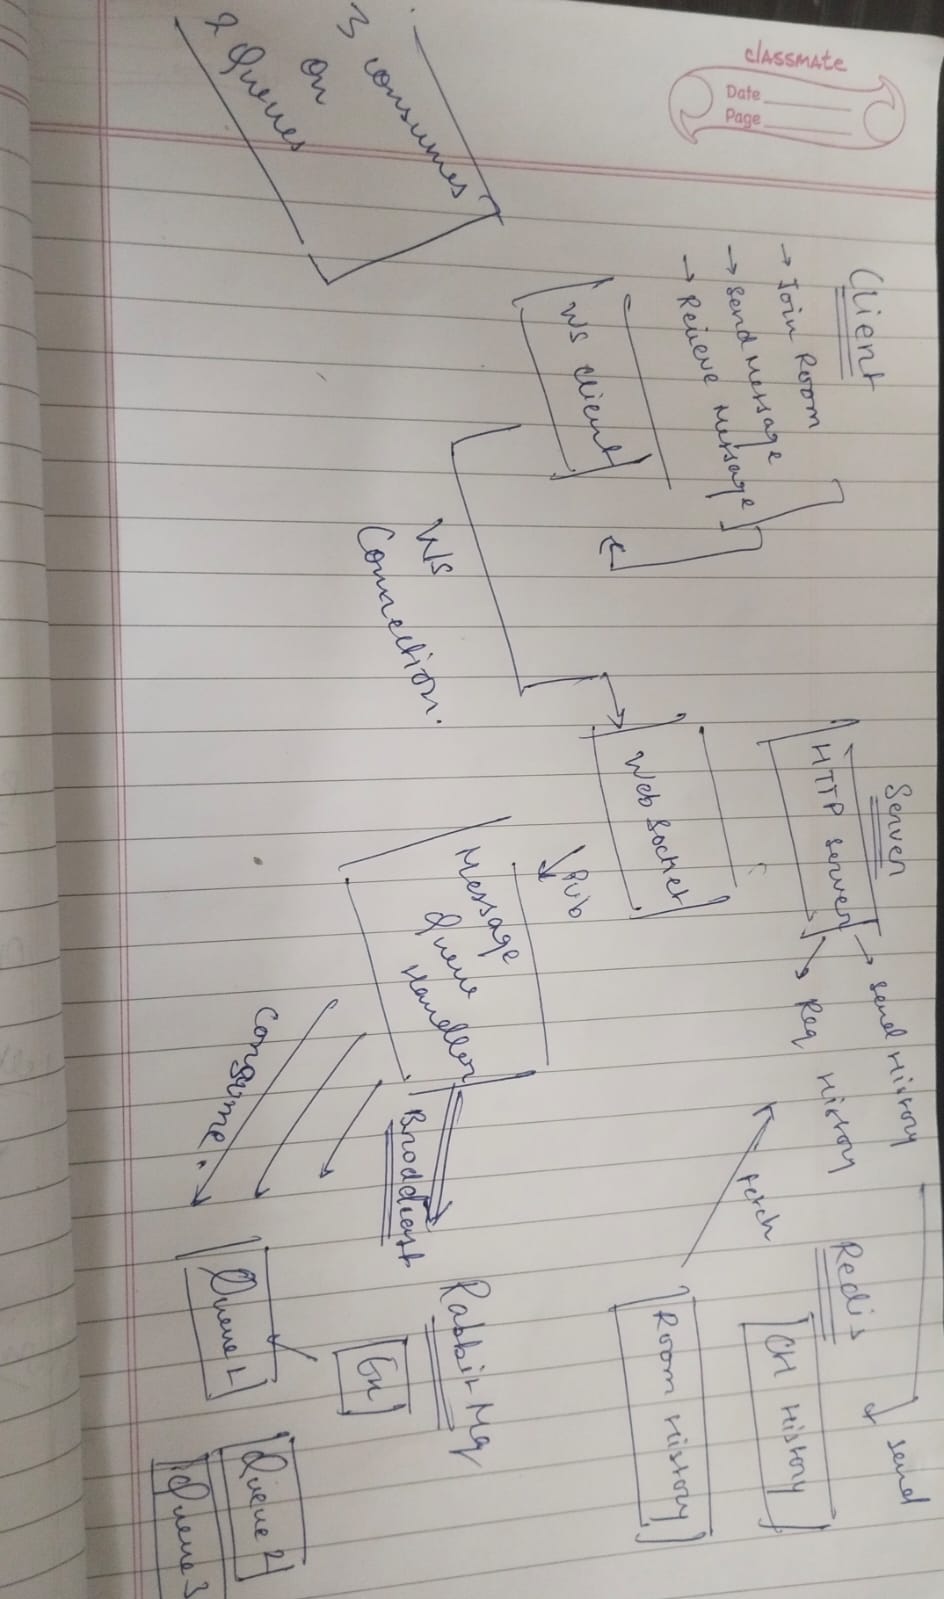 classmate
Date
Page
Client
→ Join Room
→ Send Message
→ Recieve Message
WS client
WS
Connection.
3 consumes
on
2 Queues
Server
HTTP server
→ send History
→ Req History
Web Socket
Pub
Message
Queue
Handler
Broadcast
Consume.
fetch
Redis
send
CH History
Room History
Rabbit Mq
Ex
Queue 1
Queue 2
Queue 3